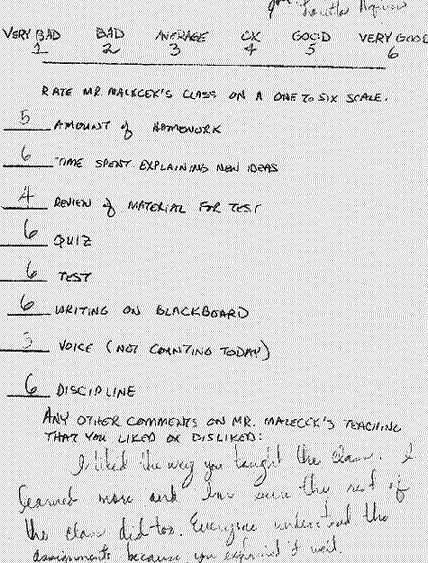 VERY BAD BAD AVERAGE OK GOOD VERY GOOD
1 2 3 4 5 6
RATE MR. MALECEK'S CLASS ON A ONE TO SIX SCALE.
5 AMOUNT of HOMEWORK
6 TIME SPENT EXPLAINING NEW IDEAS
4 REVIEW of MATERIAL FOR TEST
6 QUIZ
6 TEST
6 WRITING ON BLACKBOARD
5 VOICE (NOT COUNTING TODAY)
6 DISCIPLINE
ANY OTHER COMMENTS ON MR. MALECEK'S TEACHING
THAT YOU LIKED OR DISLIKED:
I liked the way you taught the class. I
learned more and I'm sure the rest of
the class did too. Everyone understood the
assignments because you explained it well.